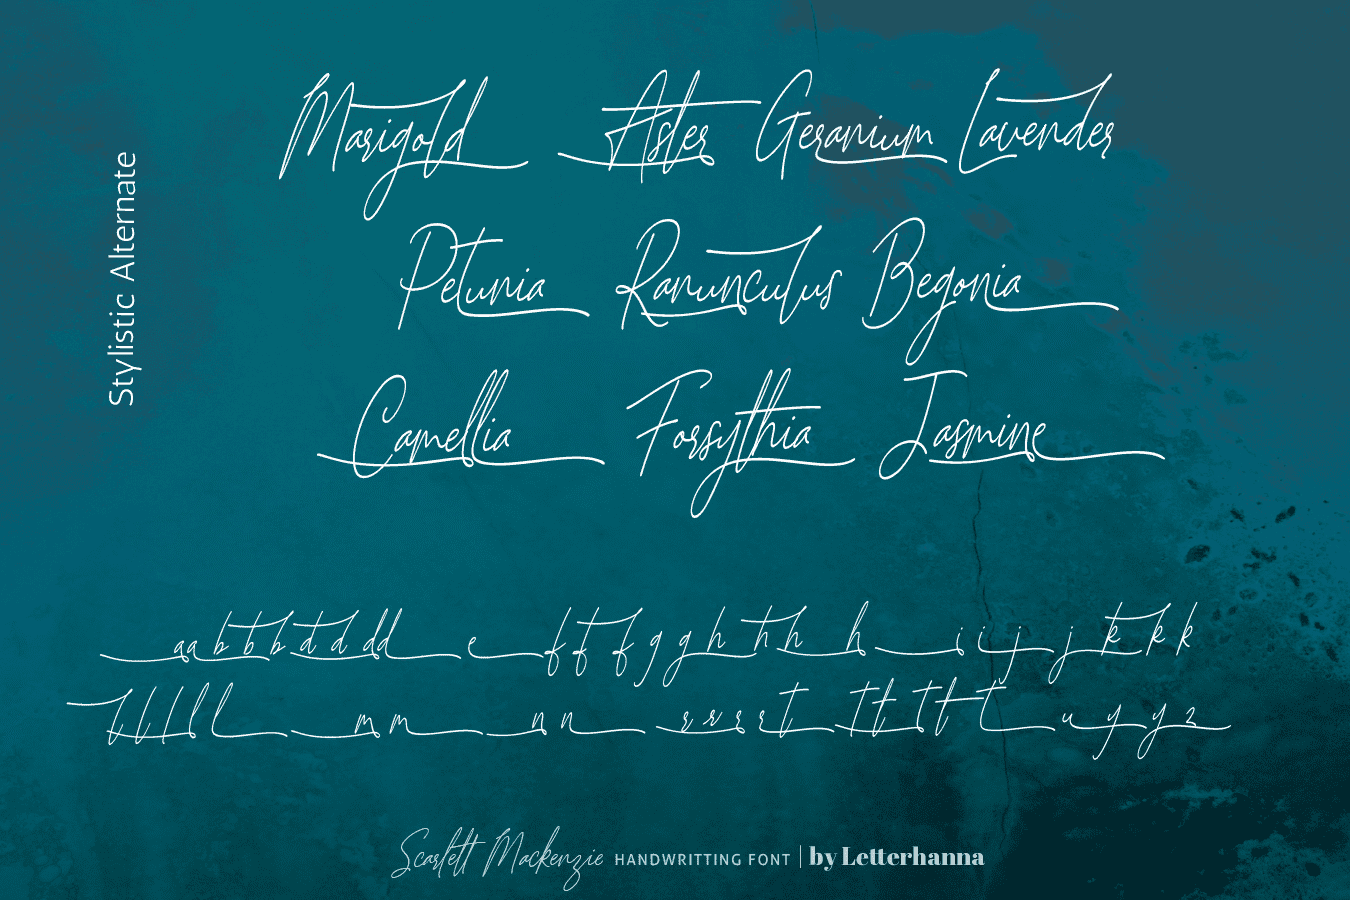 Stylistic Alternate
Marigold Aster Geranium Lavender
Petunia Ranunculus Begonia
Camellia Forsythia Jasmine
a a b b b d d d d e f f f g g h h h h i i j j k k k
l l l l l m m n n s r s r t t t t t t u y y z
Scarlett Mackenzie HANDWRITTING FONT | by Letterhanna